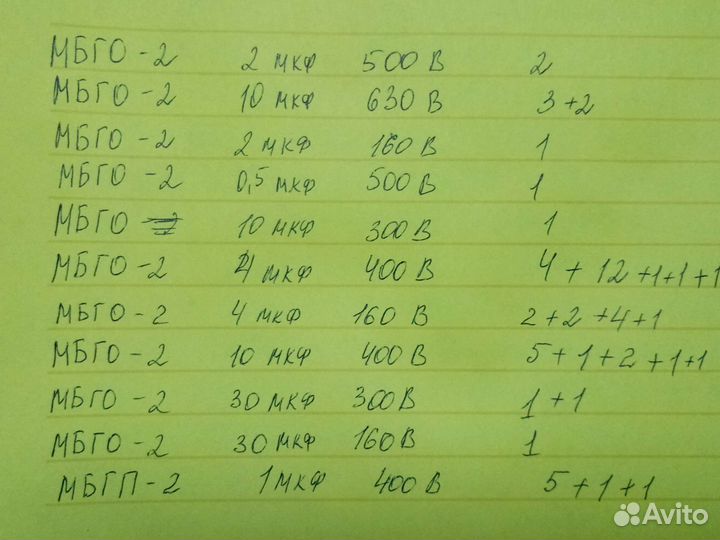 МБГО-2 2 мкф 500 В 2
МБГО-2 10 мкф 630 В 3+2
МБГО-2 2 мкф 160 В 1
МБГО-2 0,5 мкф 500 В 1
МБГО 10 мкф 300 В 1
МБГО-2 4 мкф 400 В 4+12+1+1+1
МБГО-2 4 мкф 160 В 2+2+4+1
МБГО-2 10 мкф 400 В 5+1+2+1+1
МБГО-2 30 мкф 300 В 1+1
МБГО-2 30 мкф 160 В 1
МБГП-2 1 мкф 400 В 5+1+1
Avito